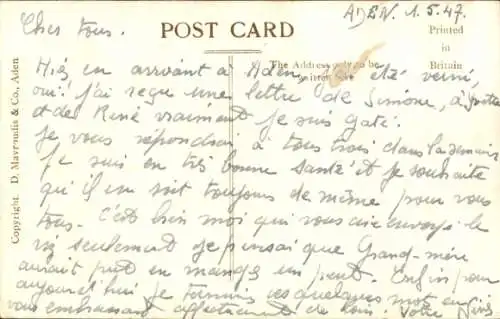 ADEN. 1.5.47.
POST CARD
Printed
in
Britain
The Address only to be
written here
Copyright D. Mavroudis & Co., Aden
Cher tous.
Hier en arrivant à Aden, été verni,
oui. j'ai reçu une lettre de Simone, d'Yvette
et de René vraiment je suis gaté.
Je vous répondrai à tous trois dans la semaine
Je suis en très bonne santé et je souhaite
qu'il en soit toujours de même pour vous
tous. C'est bien moi qui vous aie envoyé le
riz seulement je pensai que Grand-mère
aurait put en manger un peut. Enfin pour
aujourd'hui je termine ces quelques mots en
vous embrassant affectueusement de loin. Votre